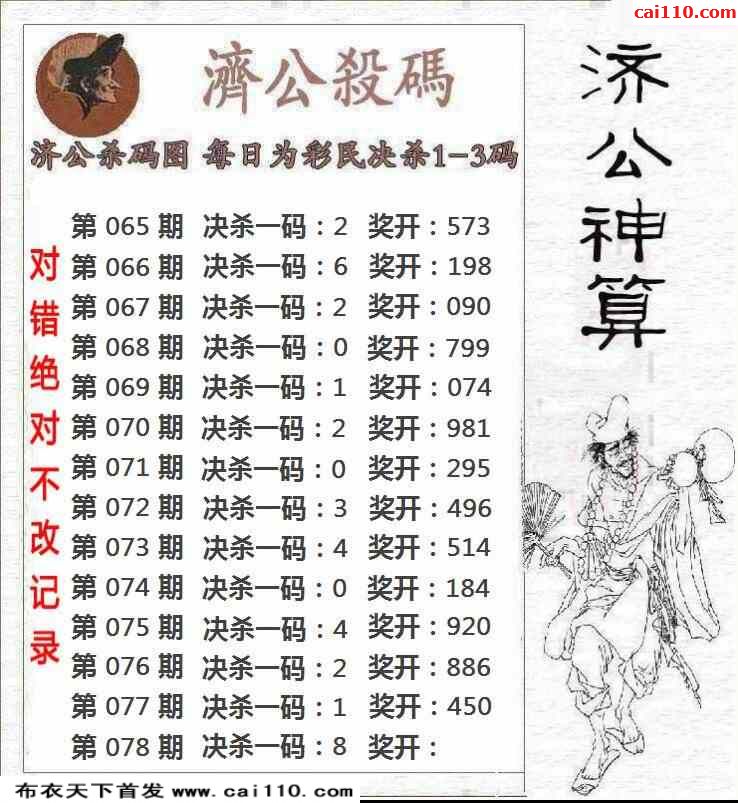 cai110.com
濟公殺碼
济公杀码图 每日为彩民决杀1-3码
第 065 期 决杀一码:2 奖开:573
第 066 期 决杀一码:6 奖开:198
第 067 期 决杀一码:2 奖开:090
第 068 期 决杀一码:0 奖开:799
第 069 期 决杀一码:1 奖开:074
第 070 期 决杀一码:2 奖开:981
第 071 期 决杀一码:0 奖开:295
第 072 期 决杀一码:3 奖开:496
第 073 期 决杀一码:4 奖开:514
第 074 期 决杀一码:0 奖开:184
第 075 期 决杀一码:4 奖开:920
第 076 期 决杀一码:2 奖开:886
第 077 期 决杀一码:1 奖开:450
第 078 期 决杀一码:8 奖开:
对错绝对不改记录
济公神算
布衣天下首发 www.cai110.com